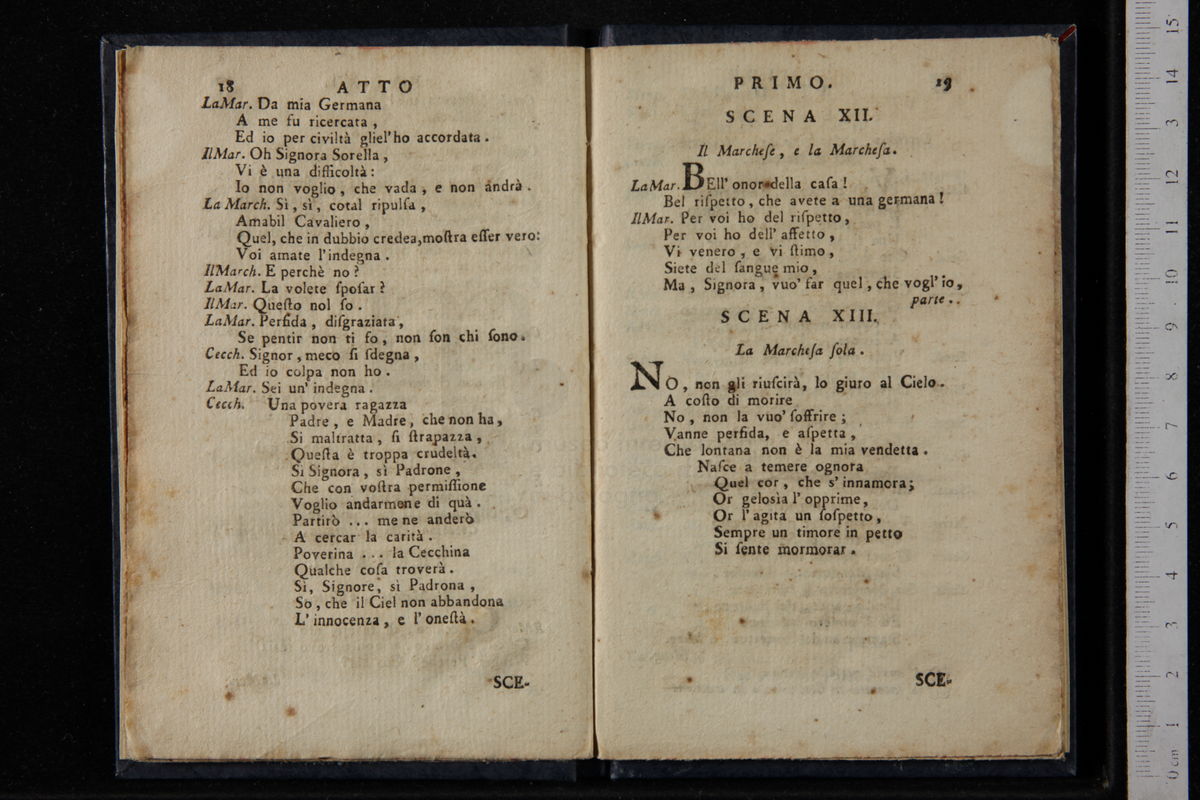 18 ATTO
LaMar. Da mia Germana
A me fu ricercata,
Ed io per civiltà gliel'ho accordata.
IlMar. Oh Signora Sorella,
Vi è una difficoltà:
Io non voglio, che vada, e non andrà.
La March. Sì, sì, cotal ripulſa,
Amabil Cavaliero,
Quel, che in dubbio credea, moſtra eſſer vero:
Voi amate l'indegna.
IlMarch. E perchè no?
LaMar. La volete ſpoſar?
IlMar. Queſto nol ſo.
LaMar. Perfida, diſgraziata,
Se pentir non ti fo, non ſon chi ſono.
Cecch. Signor, meco ſi ſdegna,
Ed io colpa non ho.
LaMar. Sei un' indegna.
Cecch. Una povera ragazza
Padre, e Madre, che non ha,
Si maltratta, ſi ſtrapazza,
Queſta è troppa crudeltà.
Sì Signora, sì Padrone,
Che con voſtra permiſſione
Voglio andarmene di quà.
Partirò ... me ne anderò
A cercar la carità.
Poverina ... la Cecchina
Qualche coſa troverà.
Sì, Signore, sì Padrona,
So, che il Ciel non abbandona
L' innocenza, e l' oneſtà.
SCE-
PRIMO. 19
SCENA XII.
Il Marcheſe, e la Marcheſa.
LaMar. BEll' onor della caſa!
Bel riſpetto, che avete a una germana!
IlMar. Per voi ho del riſpetto,
Per voi ho dell' affetto,
Vi venero, e vi ſtimo,
Siete del ſangue mio,
Ma, Signora, vuo' far quel, che vogl' io,
parte..
SCENA XIII.
La Marcheſa ſola.
NO, non gli riuſcirà, lo giuro al Cielo.
A coſto di morire
No, non la vuo' ſoffrire;
Vanne perfida, e aſpetta,
Che lontana non è la mia vendetta.
Naſce a temere ognora
Quel cor, che s' innamora;
Or geloſia l' opprime,
Or l' agita un ſoſpetto,
Sempre un timore in petto
Si ſente mormorar.
SCE-
0 cm 1 2 3 4 5 6 7 8 9 10 11 12 3 14 15